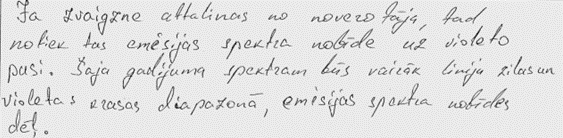 Ja zvaigzne attalinas no novērotāja, tad
notiek tas emēsijas spektra nobīde uz violeto
pusi. Šaja gadījuma spektram būs vairāk liniju zilas un
violetas krasas diapazonā, emēsijas spektra nobīdes
dēļ.